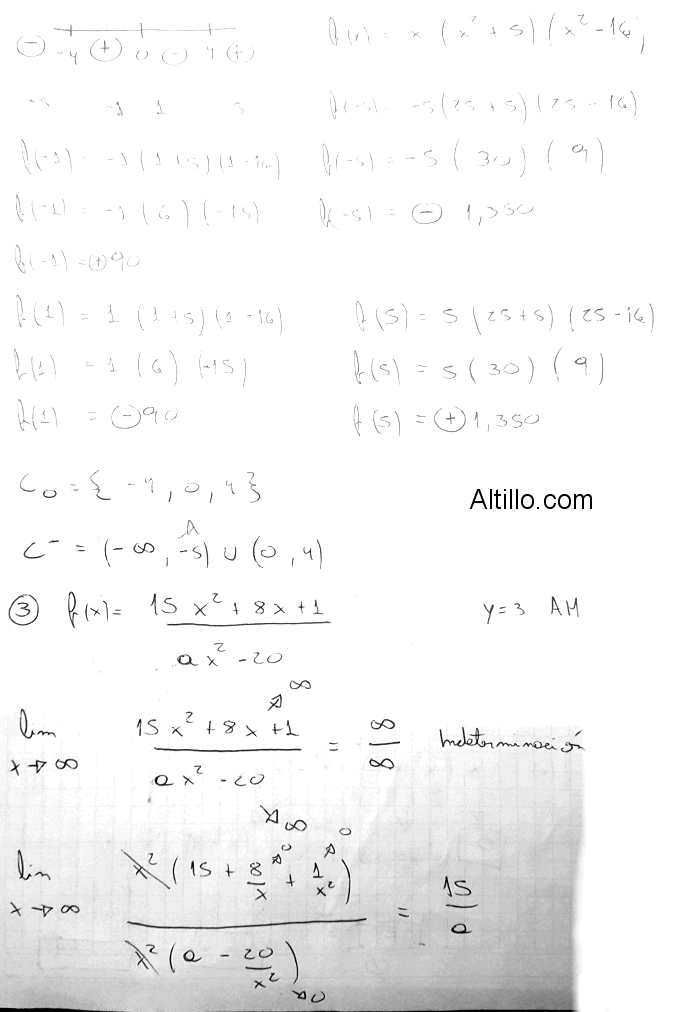 ⊖ -4 ⊕ 0 ⊖ 4 ⊕
f(x) = x (x² + 5) (x² - 16)
-5 -1 1 5
f(-5) = -5 (25 + 5) (25 - 16)
f(-1) = -1 (1+5) (1-16)
f(-5) = -5 (30) (9)
f(-1) = -1 (6) (-15)
f(-5) = ⊖ 1,350
f(-1) = ⊕90
f(1) = 1 (1+5) (1-16)
f(5) = 5 (25+5) (25-16)
f(1) = 1 (6) (-15)
f(5) = 5 (30) (9)
f(1) = ⊖90
f(5) = ⊕1,350
C₀ = {-4, 0, 4}
Altillo.com
C⁻ = (-∞, -5) ∪ (0, 4)
③ f(x) = (15x² + 8x + 1) / (ax² - 20) y=3 AH
lim x→∞ (15x² + 8x + 1)→∞ / (ax² - 20)→∞ = ∞/∞ Indeterminación
lim x→∞ x²(15 + 8/x→0 + 1/x²→0) / x²(a - 20/x²→0) = 15/a